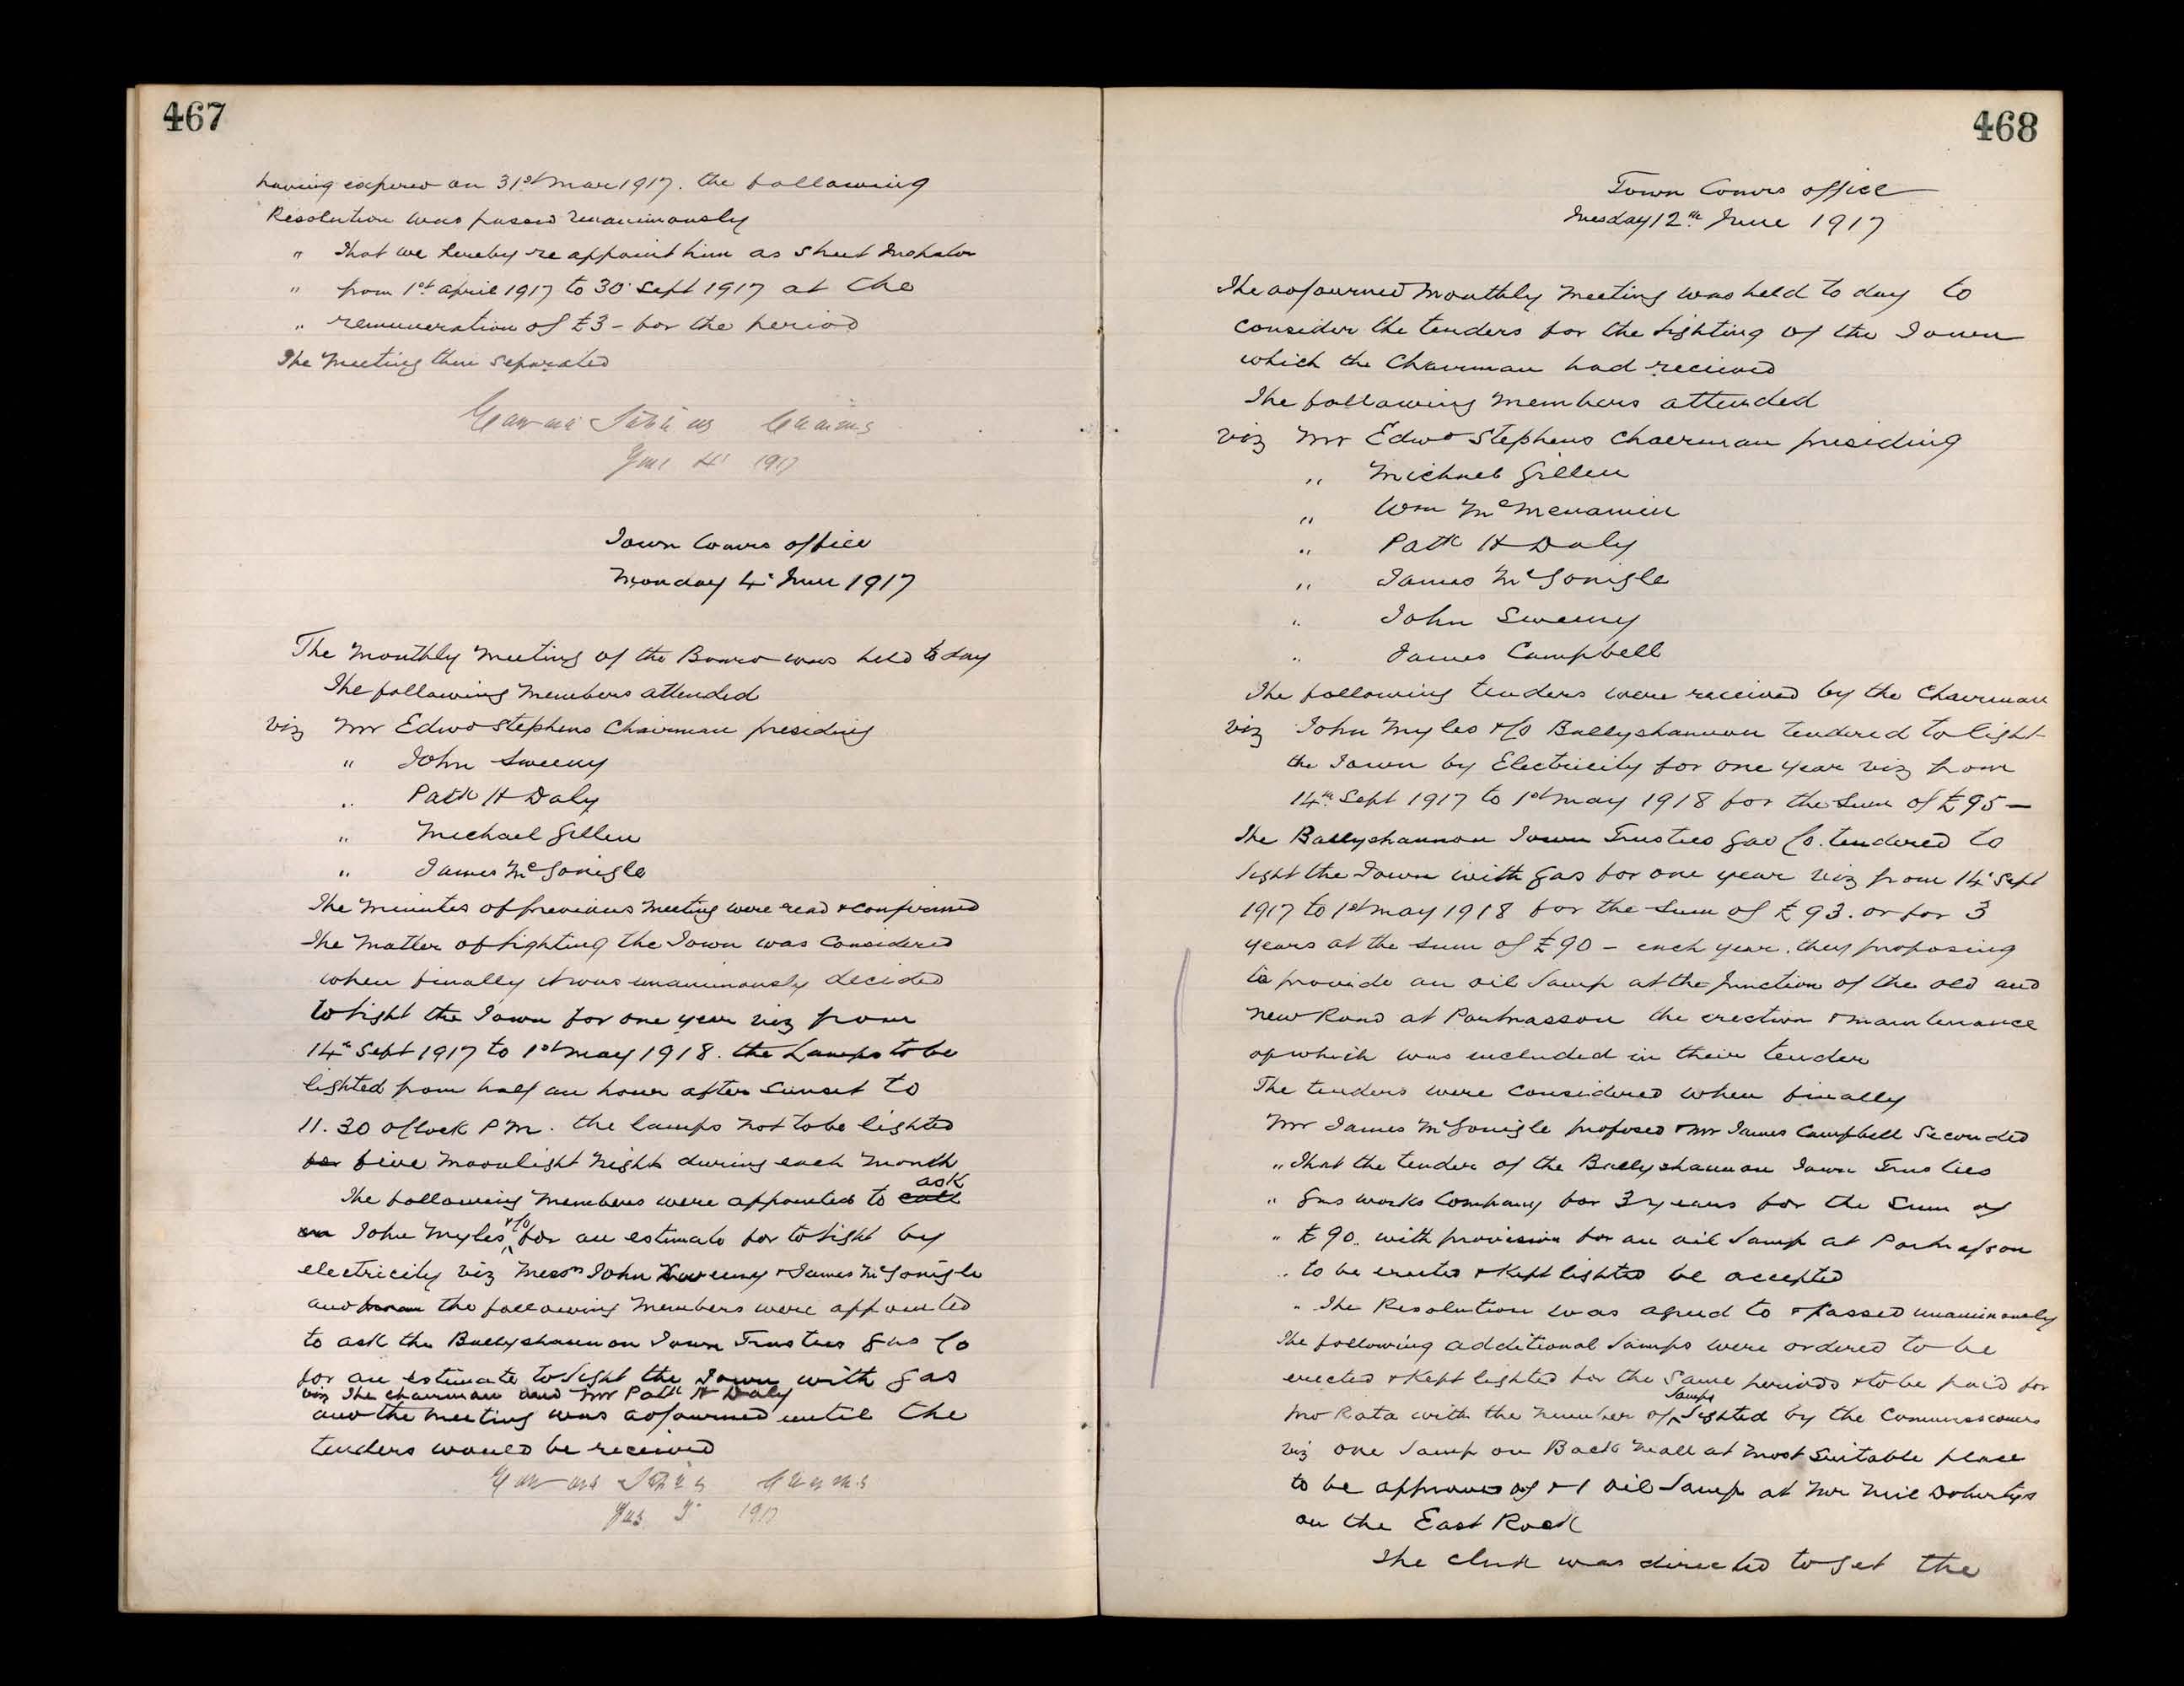 467
having expired on 31st Mar 1917. the following
Resolution was passed unanimously
" That we hereby re appoint him as Street Inspector
" from 1st april 1917 to 30 Sept 1917 at the
" remuneration of £3 - for the period
The Meeting then separated
1917
Town Comrs office
Monday 4 June 1917
The Monthly Meeting of the Board was held to day
The following Members attended
viz Mr Edwd Stephens Chairman presiding
" John Sweeny
" Patk H Daly
" Michael Gillen
" James McGonigle
The Minutes of previous Meeting were read & confirmed
The Matter of lighting the Town was Considered
when finally it was unanimously decided
to light the Town for one year viz from
14th Sept 1917 to 1st May 1918. the Lamps to be
lighted from half an hour after Sunset to
11.30 oClock P M. the lamps not to be lighted
for five Moonlight Nights during each Month
The following Members were appointed to call ask
on John Myles & Co for an estimate for to light by
electricity viz Messrs John Sweeny & James McGonigle
and the following Members were appointed
to ask the Ballyshannon Town Trustees Gas Co
for an estimate to light the Town with gas
viz The Chairman and Mr Patk H Daly
and the Meeting was adjourned until the
tenders would be received
468
Town Comrs office
Tuesday 12th June 1917
The adjourned Monthly Meeting was held to day to
consider the tenders for the lighting of the Town
which the Chairman had received
The following Members attended
viz Mr Edwd Stephens Chairman presiding
" Michael Gillen
" Wm McMenamin
" Patk H Daly
" James McGonigle
" John Sweeny
" James Campbell
The following tenders were received by the Chairman
viz John Myles & Co Ballyshannon tendered to light
the Town by Electricity for one year viz from
14th Sept 1917 to 1st May 1918 for the Sum of £95 -
The Ballyshannon Town Trustees Gas Co. tendered to
light the Town with gas for one year viz from 14 Sept
1917 to 1st May 1918 for the Sum of £93. or for 3
years at the Sum of £90 - each year. they proposing
to provide an oil lamp at the junction of the old and
New Road at Portnasson the erection & maintenance
of which was included in their tender
The tenders were considered when finally
Mr James McGonigle proposed & Mr James Campbell Seconded
" That the tender of the Ballyshannon Town Trustees
" Gas works Company for 3 years for the Sum of
" £90. with provision for an oil lamp at Portnasson
" to be erected & Kept lighted be accepted
" The Resolution was agreed to & passed unanimously
The following additional lamps were ordered to be
erected & Kept lighted for the Same periods & to be paid for
pro Rata with the Number of lamps lighted by the Commissioners
viz one lamp on Back Mall at Most Suitable place
to be approved of & 1 oil lamp at Mr Neil Dohertys
on the East Rock
The Clerk was directed to get the